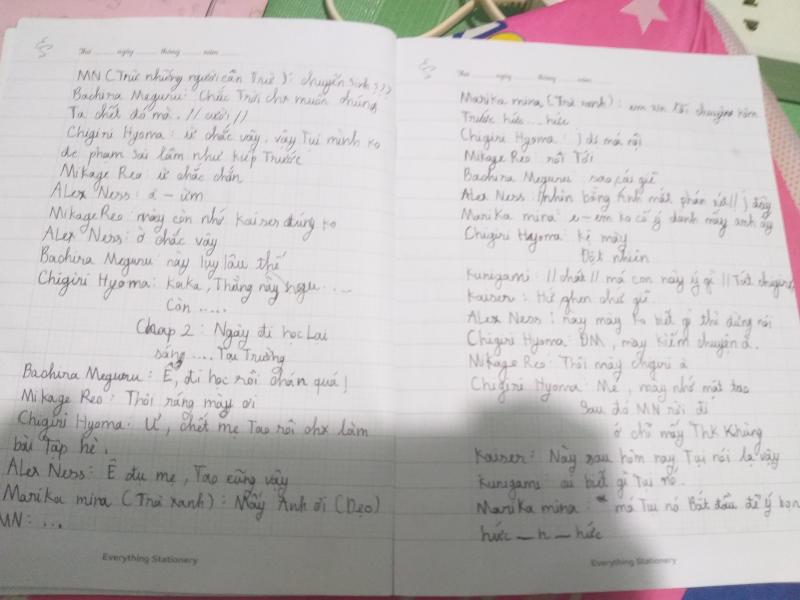 Thứ ...... ngày ...... tháng ...... năm ......
MN (Trừ những người cần Trừ): chuyển sinh ???
Bachira Meguru: Chắc Trời cho muốn chúng
Ta chết đó mà. // cười //
Chigiri Hyoma: ừ chắc vậy, vậy Tui mình ko
để phạm sai lầm như kiếp Trước
Mikage Reo: ừ chắc chắn
ALex Ness: à - ừm
Mikage Reo: mày còn nhớ Kaiser đúng ko
ALex Ness: ờ chắc vậy
Bachira Meguru: này lụy lâu thế
Chigiri Hyoma: Kaka, Thằng này ngu ....
Còn .....
Chap 2: Ngày đi học Lại
sáng .... Tại Trường
Bachira Meguru: Ê, đi học rồi chán quá!
Mikage Reo: Thôi ráng mày ơi
Chigiri Hyoma: Ư, chết mẹ Tao rồi chx làm
bài Tập hè.
ALex Ness: Ê đu mẹ, Tao cũng vậy
Marika mina (Trà xanh): Mấy Anh ơi (Dẹo)
MN: ...
Everything Stationery
Thứ ...... ngày ...... tháng ...... năm ......
Marika mina (Trà xanh): em xin lỗi chuyện hôm
Trước hức ... hức
Chigiri Hyoma: j dí má nội
Mikage Reo: nói Tới
Bachira Meguru: sao, cái giề
ALex Ness: //nhìn bằng Ánh mắt phán xét// j đây
Marika mina: e-em ko cố ý đánh mấy anh ấy
Chigiri Hyoma: kệ mày
Đột nhiên
Kunigami: //chát// má con này ý gì //Tát chigiri
Kaiser: Hứ ghen chứ giề
ALex Ness: này mày ko biết gì thì đừng nói
Chigiri Hyoma: ĐM, mày kiếm chuyện à.
Mikage Reo: Thôi mày chigiri à
Chigiri Hyoma: Mé, mày nhớ mặt tao
Sau đó MN rời đi
ở chỗ mấy Thk Khùng
Kaiser: Này sau hôm nay Tụi nói lạ vậy
Kunigami: ai biết gì Tụi nó.
Marika mina: * má Tui nó Bắt đầu để ý bọn
hức _ h _ hức
Everything Stationery